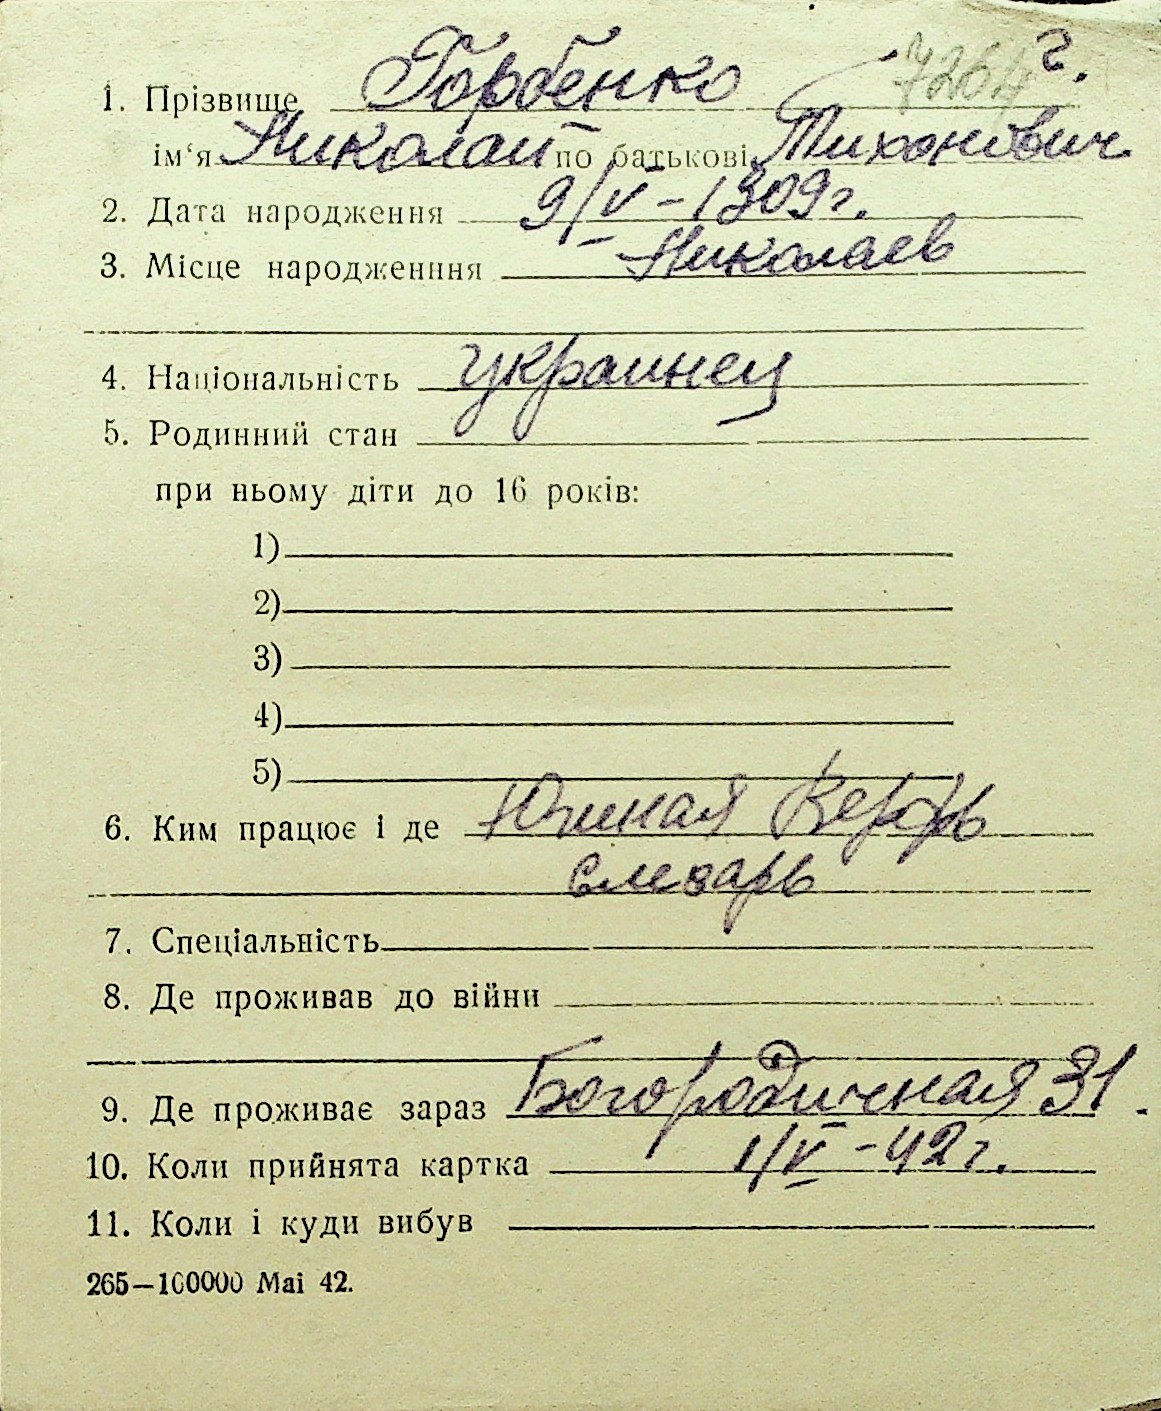 7264 г.
1. Прізвище Горбенко
ім‘я Николай по батькові Тихонович
2. Дата народження 9/V – 1909 г.
3. Місце народженння Николаев
4. Національність украинец
5. Родинний стан
при ньому діти до 16 років:
1)
2)
3)
4)
5)
6. Ким працює і де Южная Верфь
слесарь
7. Спеціальність
8. Де проживав до війни
9. Де проживає зараз Богородичная 31.
10. Коли прийнята картка 1/V – 42 г.
11. Коли і куди вибув
265—100000 Mai 42.